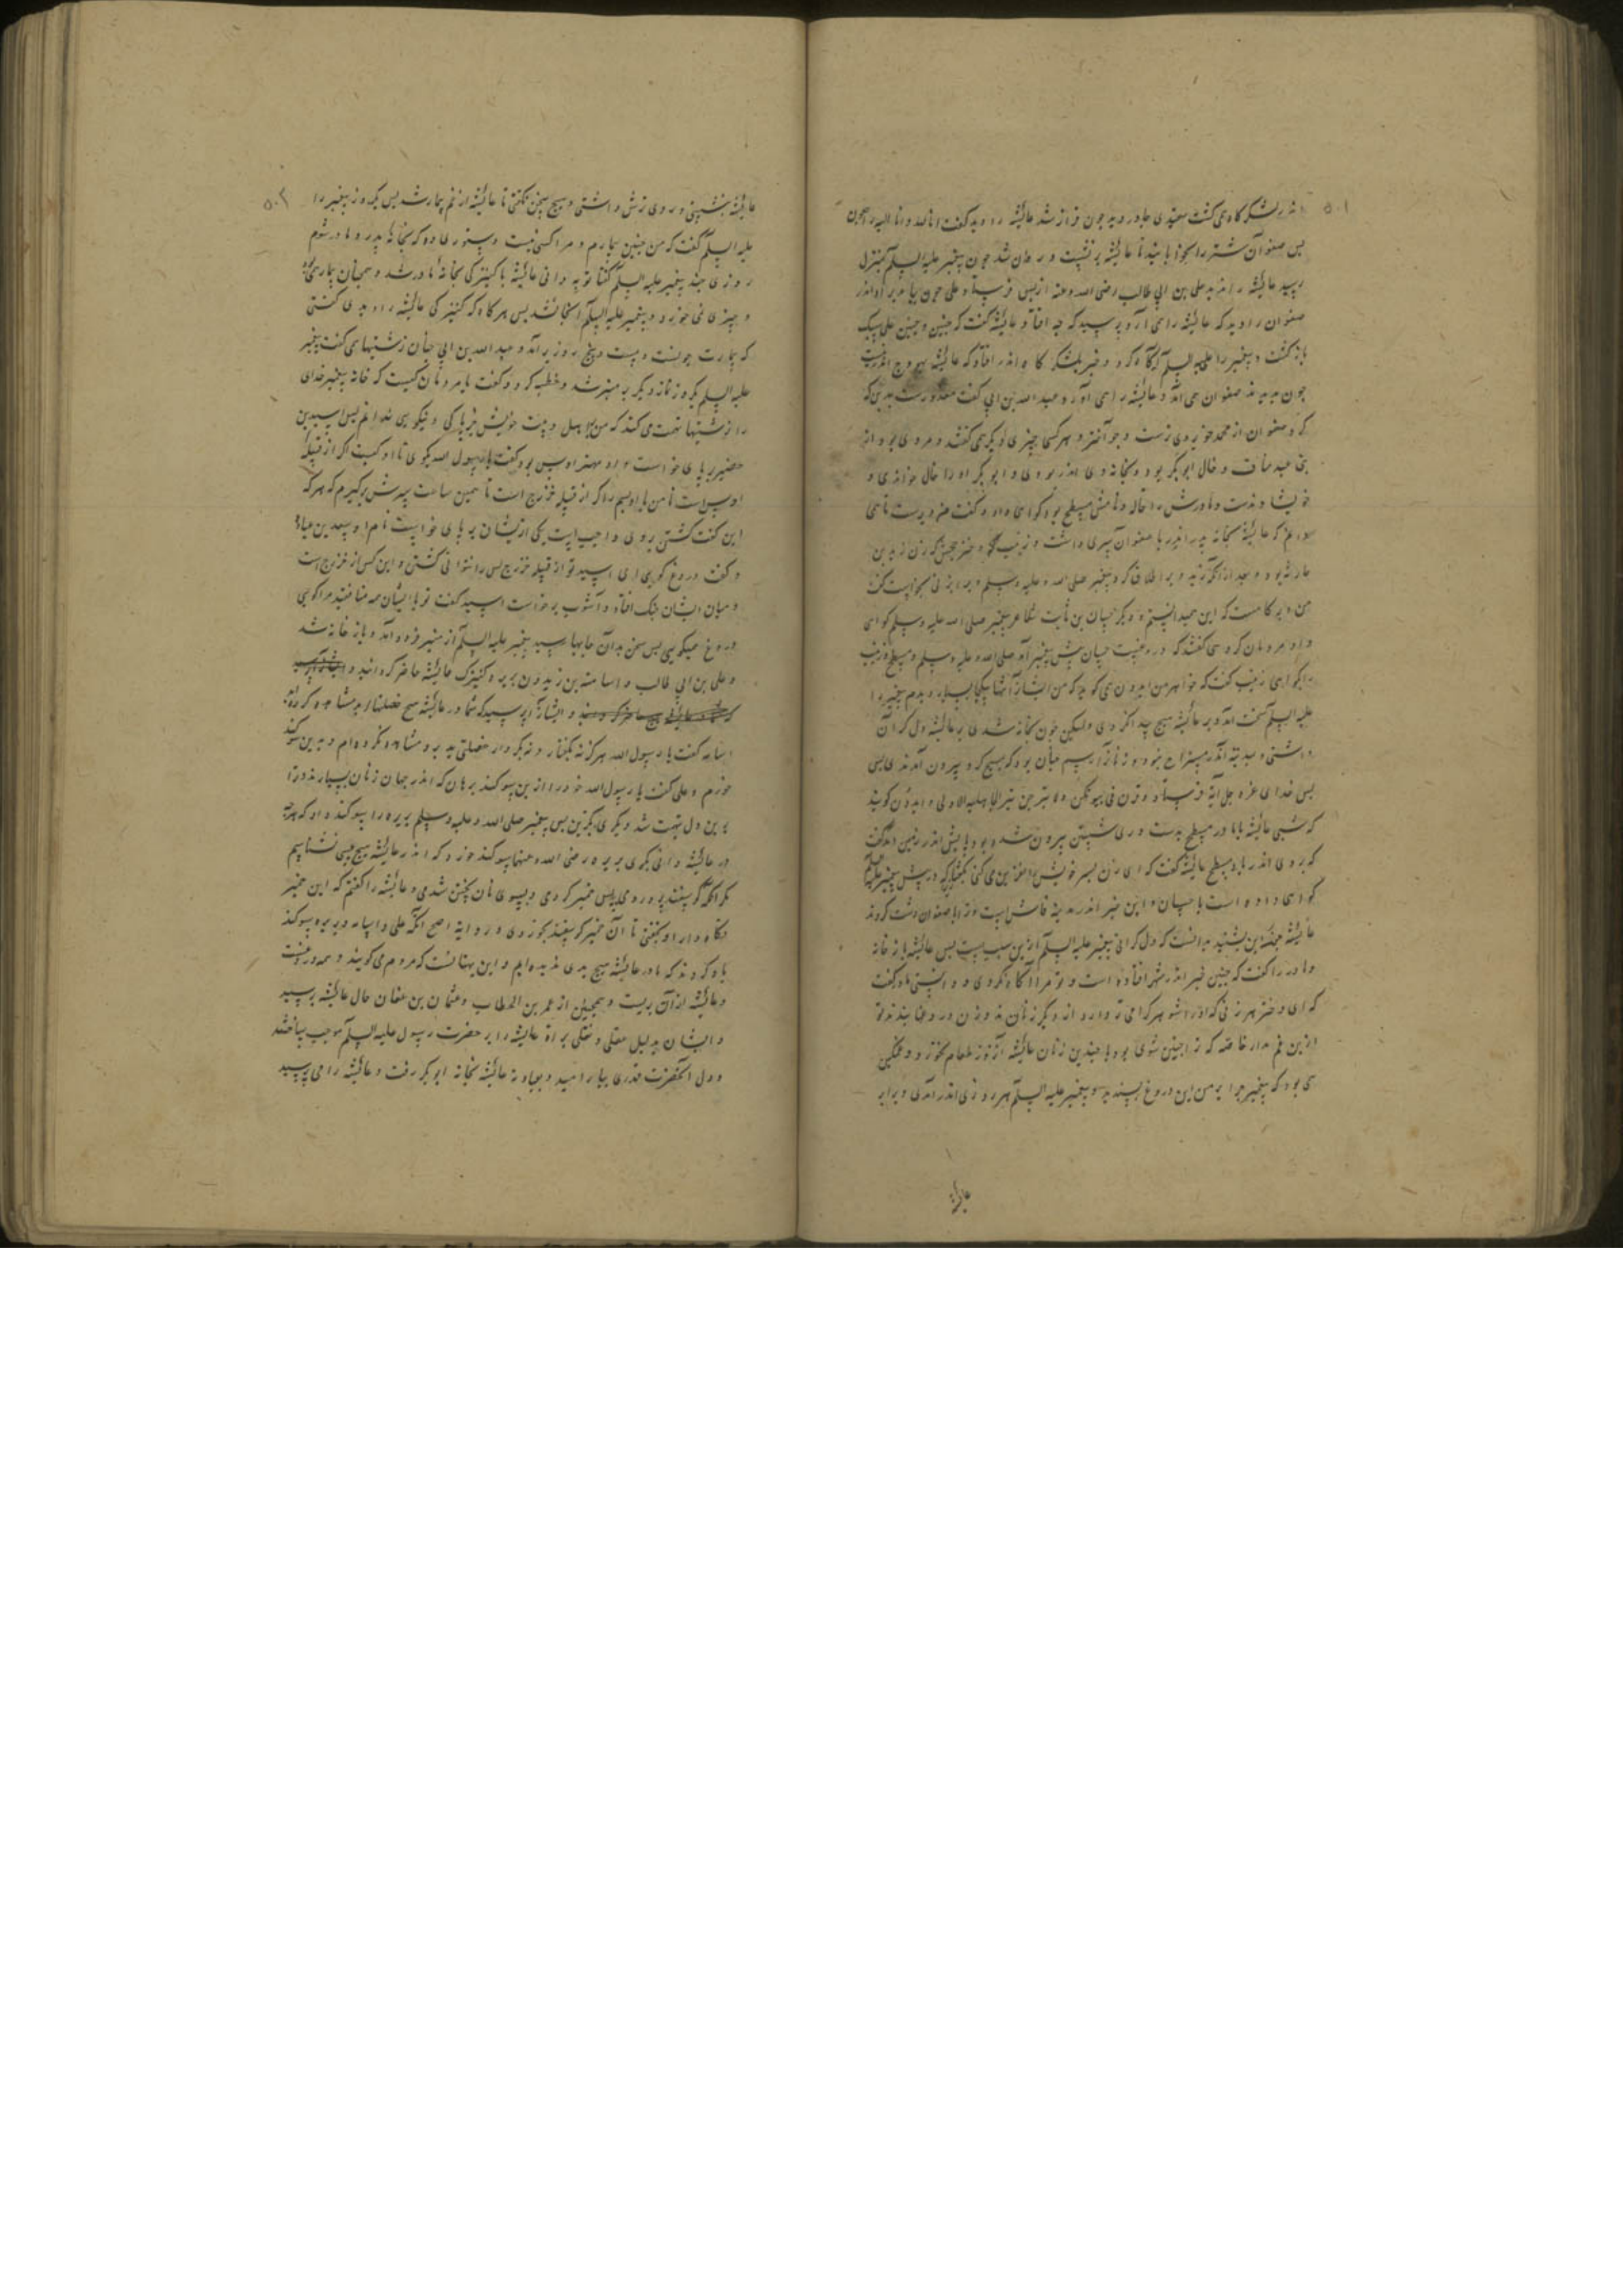 ۵۰۱
اندر لشکرگاه می گشت سپیدی چادر دید چون فراز شد عائشه را دید گفت انا لله و انا الیه راجعون
پس صفوان شتر را بخوابانید تا عائشه بر نشست و روان شد چون پیغمبر علیه السلم بمنزل
رسید عائشه را ندید علی بن ابی طالب رضی الله عنه از پس فرستاد و علی چون بیامد براه اندر
صفوان را دید که عائشه را می آرد پرسید که چه افتاد عائشه گفت که چنین و چنین علی سبک
باز گشت و پیغمبر را علیه السلم آگاه کرد و خبر بلشکرگاه اندر افتاد که عائشه بهودج اندر نیست
چون بدیدند صفوان می آمد و عائشه را می آورد عبد الله بن ابی گفت معذورست بدین که
کرد صفوان از محمد خوبروی ترست و جوانتر و هر کسی چیزی دیگر می گفتند و مردی بود از
بنی عبد مناف و خال ابو بکر بود و بخانه وی اندر بودی و ابو بکر او را خال خواندی و
خویشاوندست و مادرش را خاله و نامش مسطح بود گواهی داد و گفت
عائشه بخانه پدر اندر با صفوان سری داشت و زینب دختر جحش که زن زید بن
حارثه بود و بعد از آنکه زید ویرا طلاق کرد پیغمبر صلی الله علیه وسلم ویرا بزنی بخواست گفت
من دیرگاهست که این همی دانستم و دیگر حسان بن ثابت شاعر پیغمبر صلی الله علیه وسلم گواهی
داد مردمان گروهی گفتند که در وقت حسان پیش پیغمبر آمد صلی الله علیه وسلم و مسطح و زینب
علیه السلم سخت آمد و بر عائشه هیچ پیدا نکردی ولیکن چون بخانه شدی بر عائشه دل گران
داشتی و بمدینه اندر
پس خدای عز و جل آیة فرستاد و قرن فی بیوتکن و لا تبرجن تبرج الجاهلیة الاولی و ایدون گویند
که شبی عائشه با مادر مسطح بدست وری شستن بیرون شده بود پایش اندر زمین اندر گفت
که بروی اندر بادا مسطح عائشه گفت که ای زن پسر خویش را نفرین می کنی گفتا که در پیش پیغمبر علیه السلم
گواهی داده است با حسان و این خبر اندر مدینه فاش است و ترا با صفوان زشت کردند
عائشه چون این بشنید بدانست که دل گرانی پیغمبر علیه السلم از این سبب است پس عائشه باز خانه
و مادر را گفت که چنین خبر اندر شهر افتاده است و تو مرا آگاه نکردی و دانستی مادر گفت
که ای دختر هر زنی که او را شوهر گرامی تر دارد از دیگر زنان
ازین غم مدار خاصه که ترا چنین شوی بود با چندین زنان عائشه آن روز طعام نخورد و غمگین
می بود که پیغمبر چرا بر من این دروغ پسندید و پیغمبر علیه السلم هر روزی اندر آمدی و برابر
عائشه
۵۰۲
عائشه بنشستی و روی ترش داشتی و هیچ سخن نگفتی تا عائشه از غم بیمار شد پس یک روز پیغمبر را
علیه السلم گفت که من چنین بیمارم و مرا کسی نیست دستوری ده که بخانه پدر و مادر شوم
روزی چند پیغمبر علیه السلم گفتا تو به دانی عائشه با کنیزکی بخانه مادر شد و همچنان بیمار می بود
و چیزی نمی خورد و پیغمبر علیه السلم آنجا نشد پس هر گاه که کنیزکی عائشه را دیدی گفتی
که بیمارت چونست و بیست و پنج روز برآمد و عبد الله بن ابی چنان زشتیها می گفت پیغمبر
علیه السلم یک روز نماز دیگر بر منبر شد و خطبه کرد و گفت یا مردمان کیست که خانه پیغمبر خدای
را زشتیها تهمت می کند که من از اهل و بیت خویش جز پاکی و نیکویی ندانم پس اسید بن
حضیر بر پای خاست و او مهتر اوس بود گفت یا رسول الله بگوی تا او کیست اگر از قبیله
اوس است تا من و اگر از قبیله خزرج است تا همین ساعت سرش برگیرم که هر که
این گفت کشتن بر وی واجب است یکی ازیشان بر پای خواست نام او سعد بن عباده
و گفت دروغ گویی ای اسید تو از قبیله خزرج کس را نتوانی کشتن و این کس از خزرج است
و میان ایشان جنگ افتاد و آشوب برخواست اسید گفت تو با ایشان منافقید مرا گویی
دروغ میگویی پس سخن بدان جایها رسید پیغمبر علیه السلم از منبر فرود آمد و باز خانه شد
و علی بن ابی طالب و اسامة بن زید و بریره کنیزک عائشه حاضر گردانید
و ایشانرا پرسید که شما در عائشه هیچ خصلتها بد مشاهده کرده اید
اسامه گفت یا رسول الله هرگز نه بگفتار و نه بکردار خصلتی بد برو مشاهده نکرده ام و بدین سوگند
خورم و علی گفت یا رسول الله خود را ازین سوگند برهان که اندر جهان زنان بسیارند و ترا
برین دل تهمت شد دیگری بگزین پس پیغمبر صلی الله علیه وسلم بریره را سوگند داد که هر چه
در عائشه دانی بگوی بریره رضی الله عنها سوگند خورد که اندر عائشه هیچ عیبی نشناسم
مگر آنکه گوسفند پروردمی پس خمیر کردمی و بسوی نان پختن شدمی و عائشه را گفتم که این خمیر
نگاه دار او بخفتی تا آن خمیر گوسفند بخوردی و روایة اصح آنکه علی و اسامه و بریره سوگند
یاد کردند که ما در عائشه هیچ بدی ندیده ایم و این بهتانست که مردم می گویند و همه دروغست
و عائشه از آن بریست و همچنین از عمر بن الخطاب و عثمان بن عفان حال عائشه پرسید
و ایشان بدلیل عقلی و نقلی براة عائشه را بر حضرت رسول علیه السلم موجب ساختند
و دل آنحضرت قدری بیارامید و بعیادت عائشه بخانه ابو بکر رفت و عائشه را می پرسید